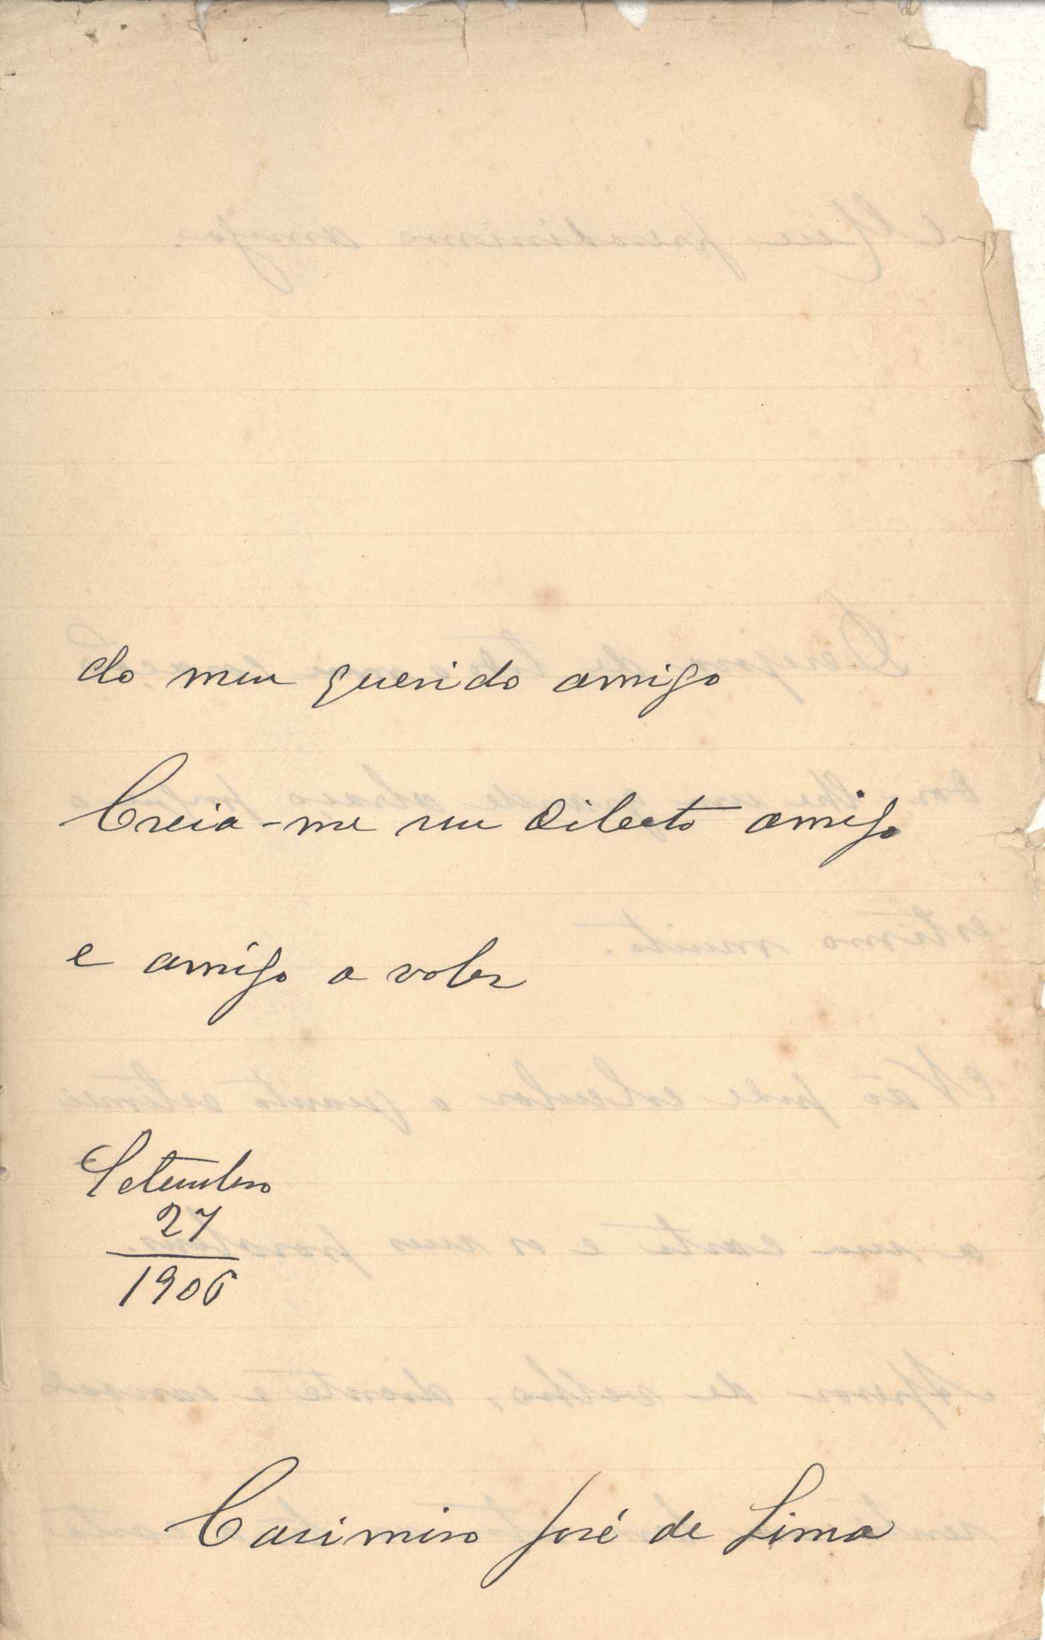 do meu querido amigo
Creia-me seu dilecto amigo
e amigo a valer
Setembro
27
1906
Casimiro José de Lima